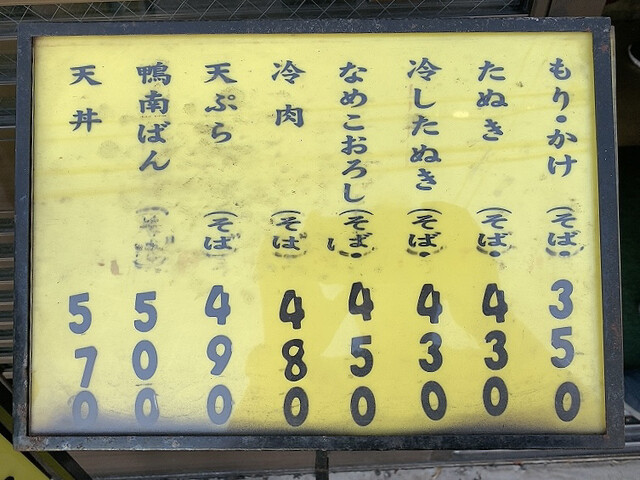 もり・かけ（そば・ 350
たぬき（そば・ 430
冷したぬき（そば・ 430
なめこおろし（そば・ 450
冷肉（そば 480
天ぷら（そば 490
鴨南ばん（そば 500
天丼 570